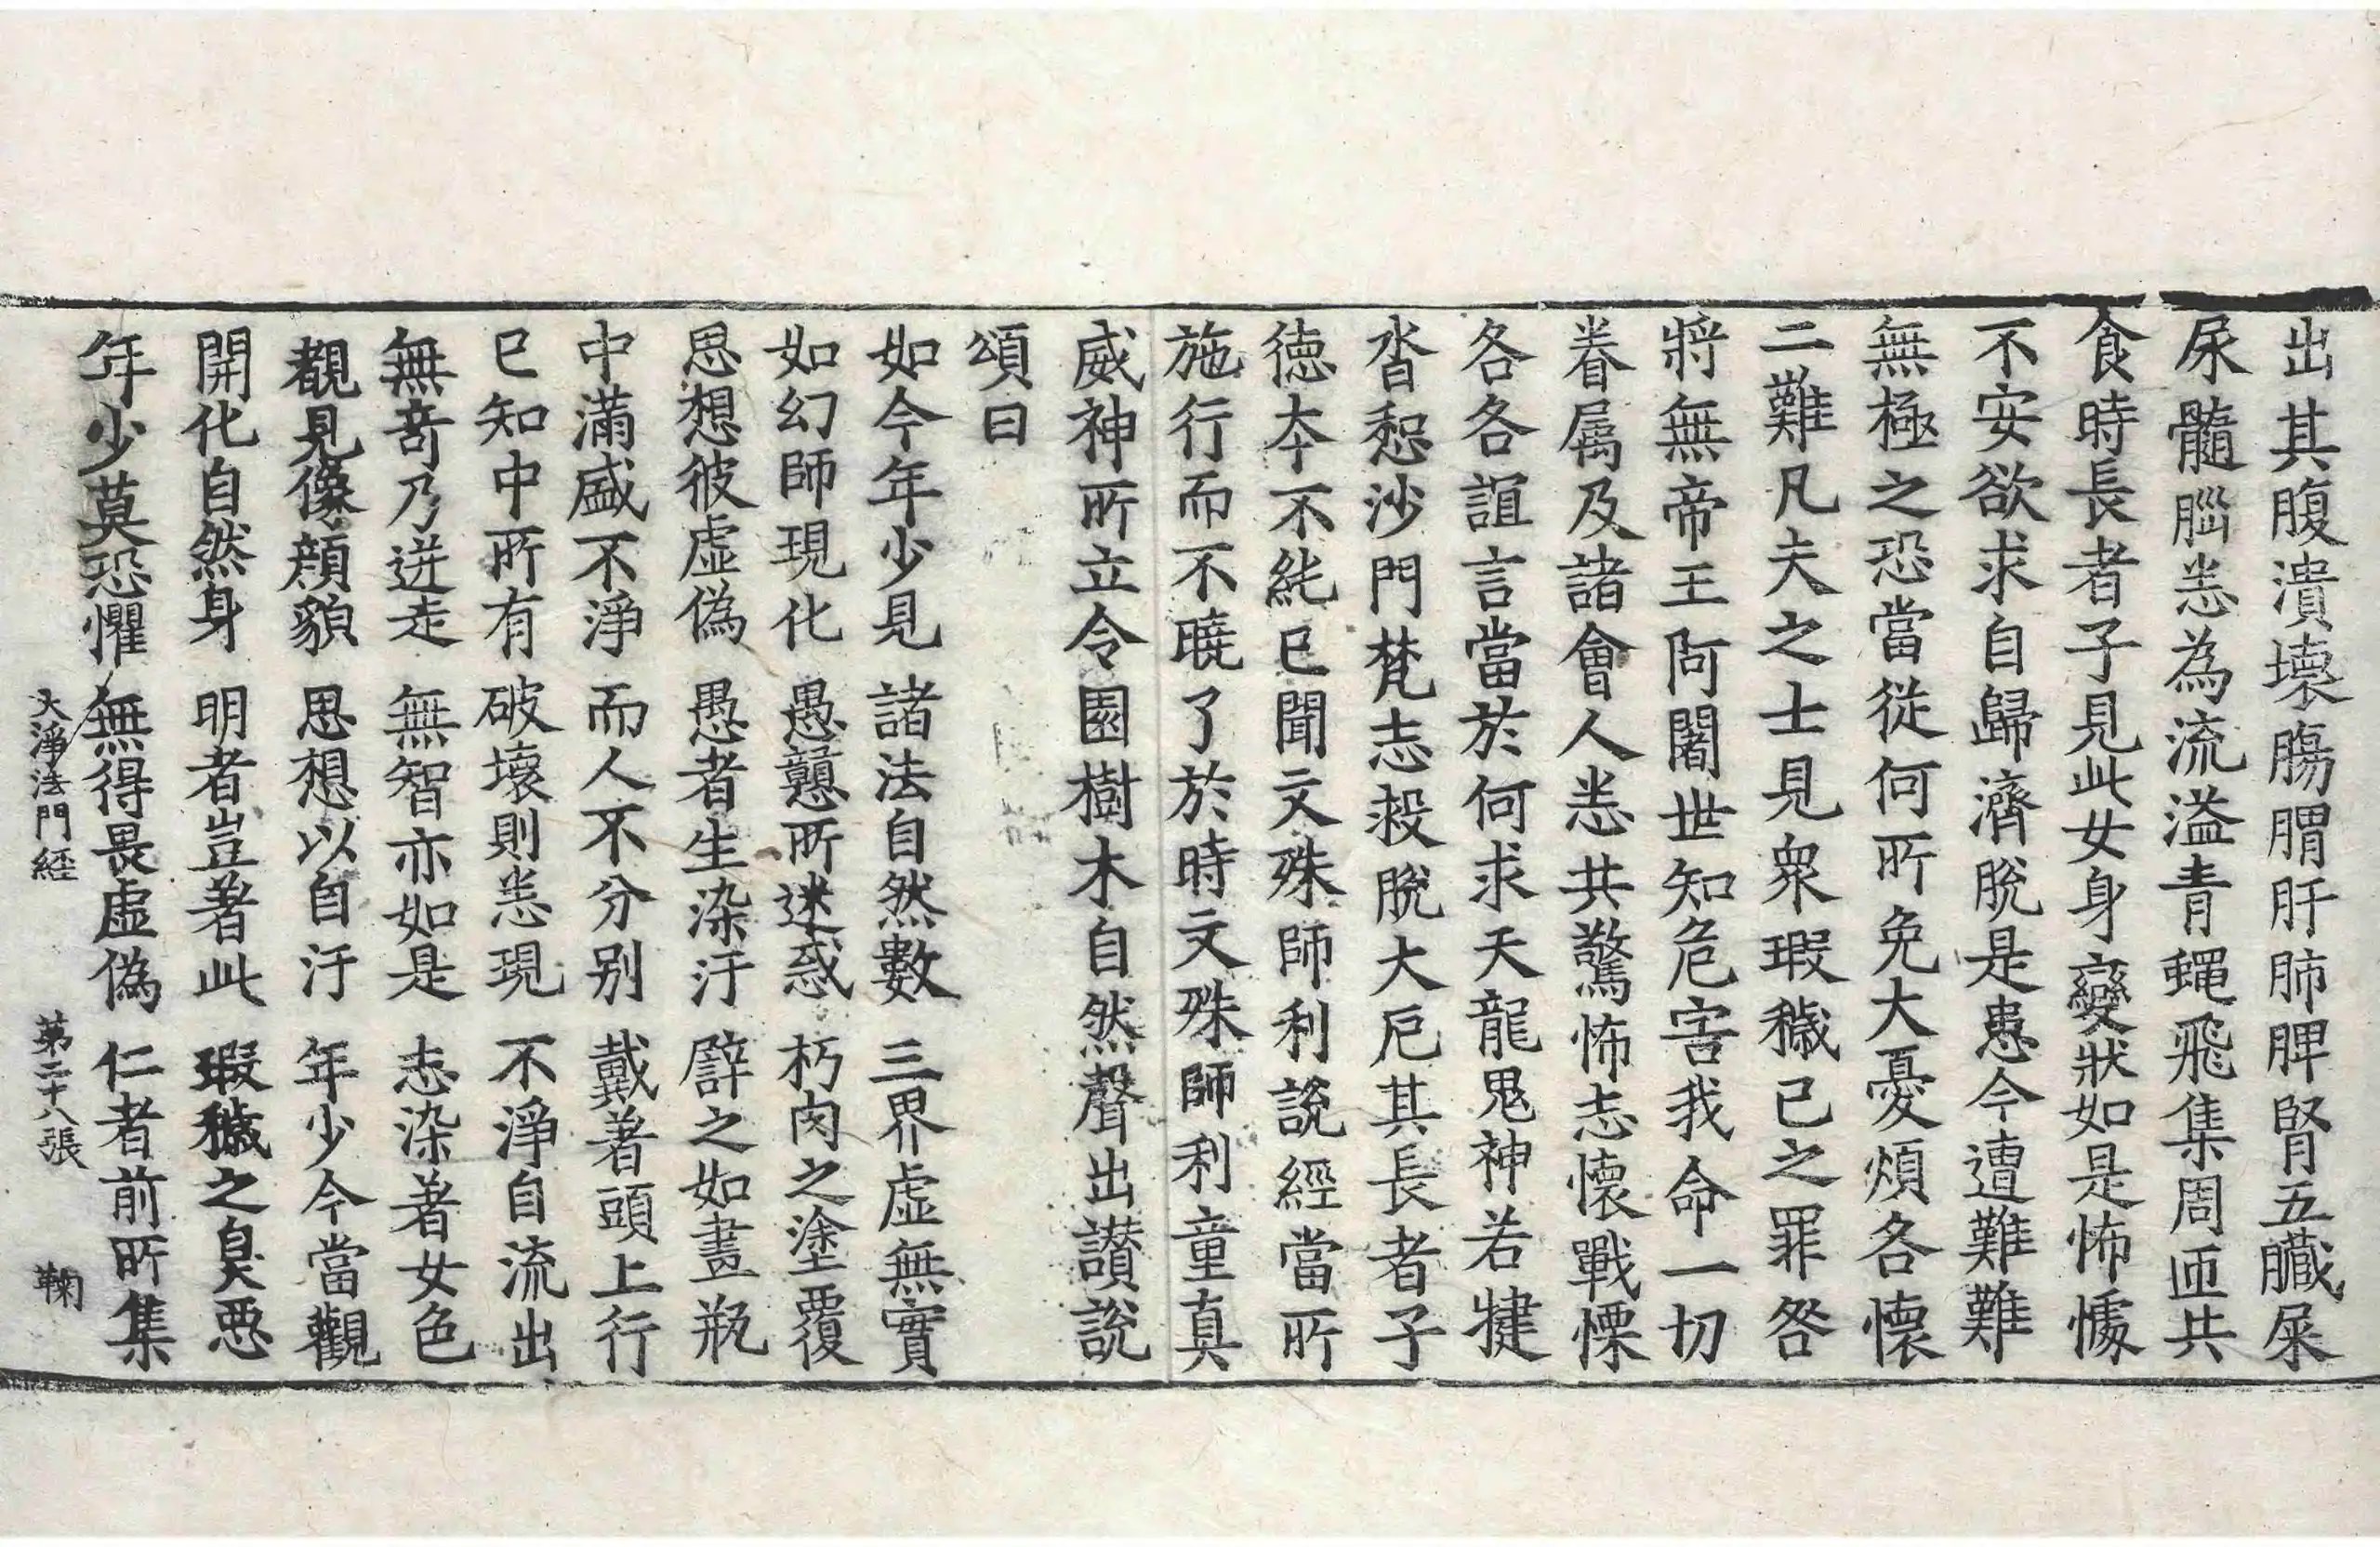 出其腹潰壞腸胃肝肺脾腎五臟屎
尿髓腦悉為流溢青蠅飛集周匝共
食時長者子見此女身變狀如是怖懅
不安欲求自歸濟脫是患今遭難難
無極之恐當從何所免大憂煩各懷
二難凡夫之士見眾瑕穢已之罪咎
將無帝王阿闍世知危害我命一切
眷屬及諸會人悉共驚怖志懷戰慄
各各誼言當於何求天龍鬼神若揵
沓惒沙門梵志救脫大厄其長者子
德本不純已聞文殊師利說經當所
施行而不曉了於時文殊師利童真
威神所立令園樹木自然聲出讚說
頌曰
如今年少見 諸法自然數 三界虛無實
如幻師現化 愚戇所迷惑 朽肉之塗覆
思想彼虛偽 愚者生染汙 譬之如畫瓶
中滿盛不淨 而人不分別 戴著頭上行
已知中所有 破壞則悉現 不淨自流出
無奇乃迸走 無智亦如是 志染著女色
覩見像顏貌 思想以自汙 年少今當觀
開化自然身 明者豈著此 瑕穢之臭惡
年少莫恐懼 無得畏虛偽 仁者前所集
大淨法門經 第二十八張 鞠